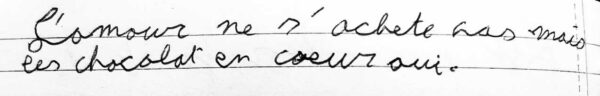 L'amour ne s'achete pas mais
les chocolat en coeur oui.